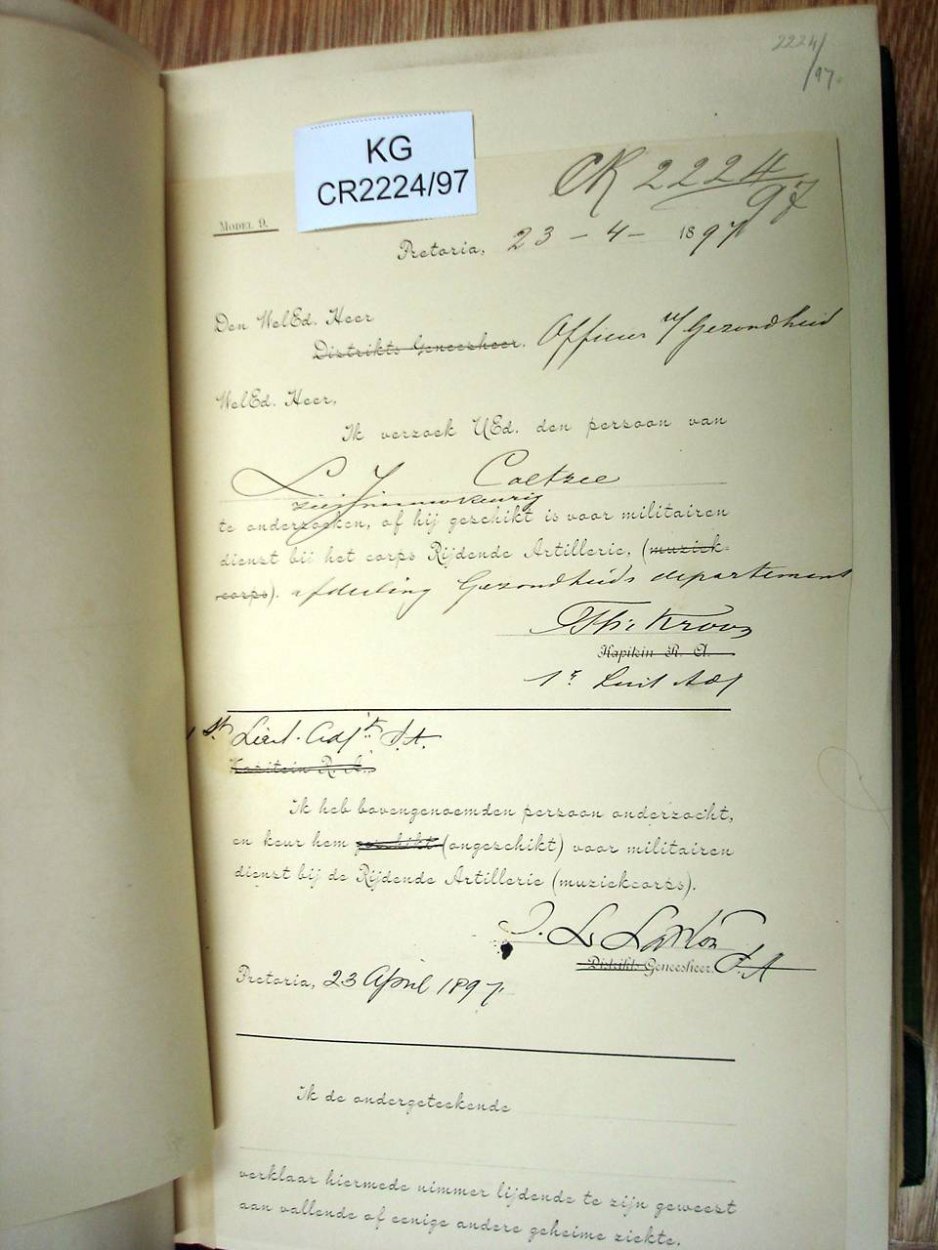 2224/97.
KG
CR2224/97
CR 2224/97
MODEL 9.
Pretoria, 23 - 4 - 1897
Den WelEd. Heer
Distrikts Geneesheer. Officier v/ Gezondheid
WelEd. Heer,
Ik verzoek UEd. den persoon van
L J Coetzee
zeer nauwkeurig
te onderzoeken, of hij geschikt is voor militairen
dienst bij het corps Rijdende Artillerie, (muziek-
corps). afdeeling Gezondheids departement
Kapitein R. A.
1e Luit Adj
1st Lieut. Adjt S.A.
Kapitein R. A.
Ik heb bovengenoemden persoon onderzocht,
en keur hem geschikt (ongeschikt) voor militairen
dienst bij de Rijdende Artillerie (muziekcorps).
Distrikts Geneesheer. S.A
Pretoria, 23 April 1897.
Ik de ondergeteekende
verklaar hiermede nimmer lijdende te zijn geweest
aan vallende of eenige andere geheime ziekte.